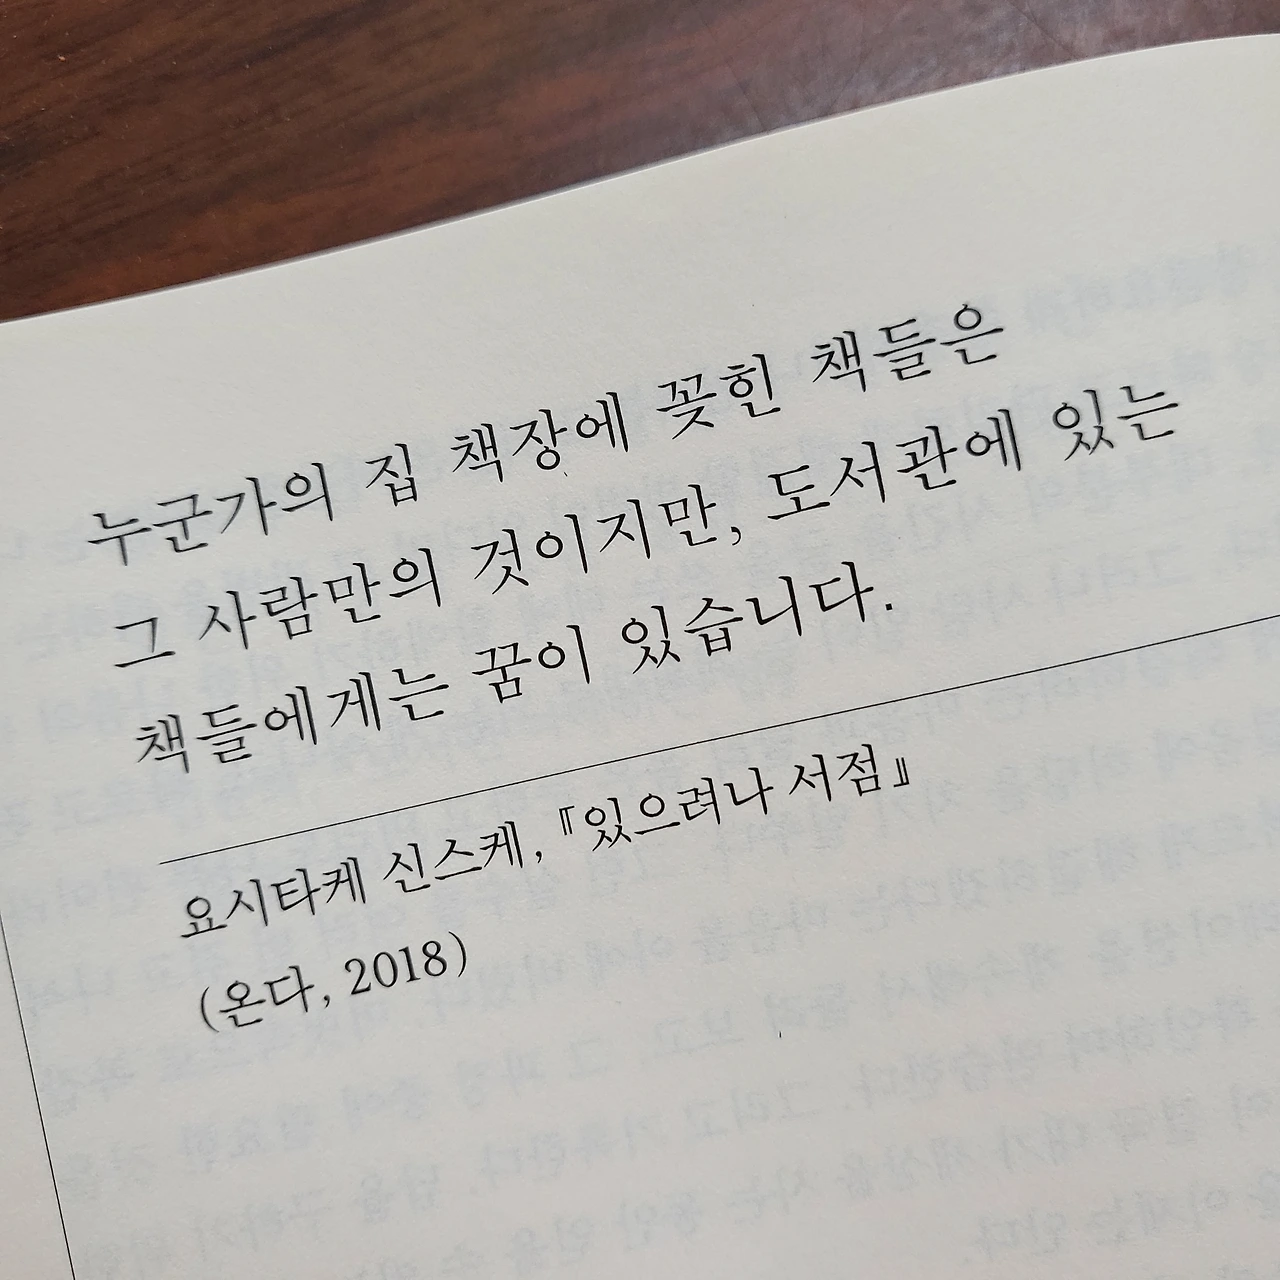 누군가의 집 책장에 꽂힌 책들은
그 사람만의 것이지만, 도서관에 있는
책들에게는 꿈이 있습니다.
요시타케 신스케, 『있으려나 서점』
(온다, 2018)